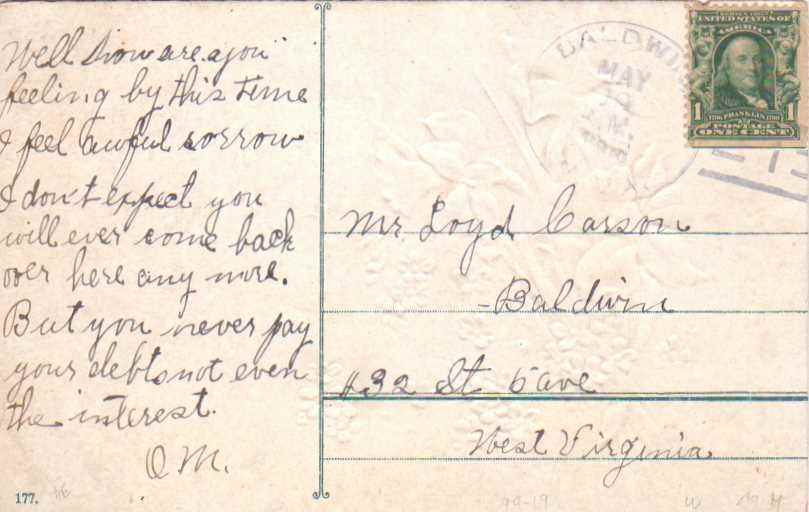 Well how are you
feeling by this time
I feel awful sorrow
I don't expect you
will ever come back
over here any more.
But you never pay
your debts not even
the interest.
O M.
177.
BALDWIN
MAY
UNITED STATES OF
AMERICA
1 1
FRANKLIN
POSTAGE
ONE CENT
Mr. Loyd Carson
Baldwin
#32 St 6 ave
West Virginia
99-19